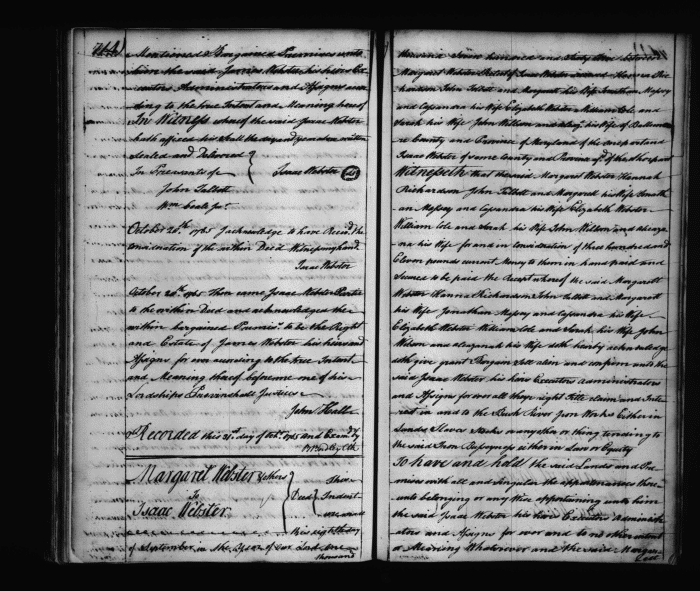 164
Mentioned & Bargained Premises unto
him the said James Webster his heirs Ex
ecutors Administrators and Assigns accor
ding to the true Intent and Meaning hereof
In Witness whereof the said Isaac Webster
hath affixed his Seal the day and year above written
Sealed and Delivered
In Presents of Isaac Webster
John Talbott
October 26th 1765 I acknowledge to have Receivd the
Consideration of the within Deed Witness my hand
Isaac Webster
October 26th 1765 Then came Isaac Webster Party
to the within Deed and acknowledged the
within bargained Premises to be the Right
and Estate of James Webster his heirs and
Assigns for ever according to the true Intent
and Meaning thereof before me one of his
Lordships Provinchall Justices
John Hall
Recorded this 31st day of 1765 and Examd by
Margaret Webster & others This
to Deed Indent
Isaac Webster
this eighth day
of September in the Year of our Lord one
thousand
thousand seven hundred and Sixty between
Margaret Webster of Isaac Webster Hannah Ric
hardson John Talbott and Margarett his Wife Jonathan Massey
and Cassandra his Wife Elizabeth Webster William Cole and
Sarah his Wife John Wilson and his Wife of Baltimo
re County and Province of Maryland of the one part and
Isaac Webster of same County and Province of the other part
Witnesseth that the said Margaret Webster Hannah
Richardson John Talbott and Margaret his Wife Jonath
an Massey and Cassandra his Wife Elizabeth Webster
William Cole and Sarah his Wife John Wilson and
his Wife for and in Consideration of three hundred and
Eleven pounds current Money to them in hand paid and
Secured to be paid the Receipt whereof the said Margarett
Webster Hanna Richardson John Talbott and Margarett
his Wife Jonathan Massey and Cassandra his Wife
Elizabeth Webster William Cole and Sarah his Wife John
Wilson and his Wife doth hereby acknowledge
doth give grant Bargain Sell alien and confirm unto the
said Isaac Webster his heirs Executors Administrators
and Assigns for ever all there right Title claim and Inte
rest in and to the Bush River Iron Works Either in
Lands Slaves Stocks or anything tending to
the said Iron Buisyness either in Law or Equity
To have and hold the said Lands and Pre
mises with all and Singular the appurtenances there
unto belonging or any Wise appertaining unto him
the said Isaac Webster his heirs Executors Administr
ators and Assigns for ever and to no other intent
or Meaning Whatsoever and the said Margar